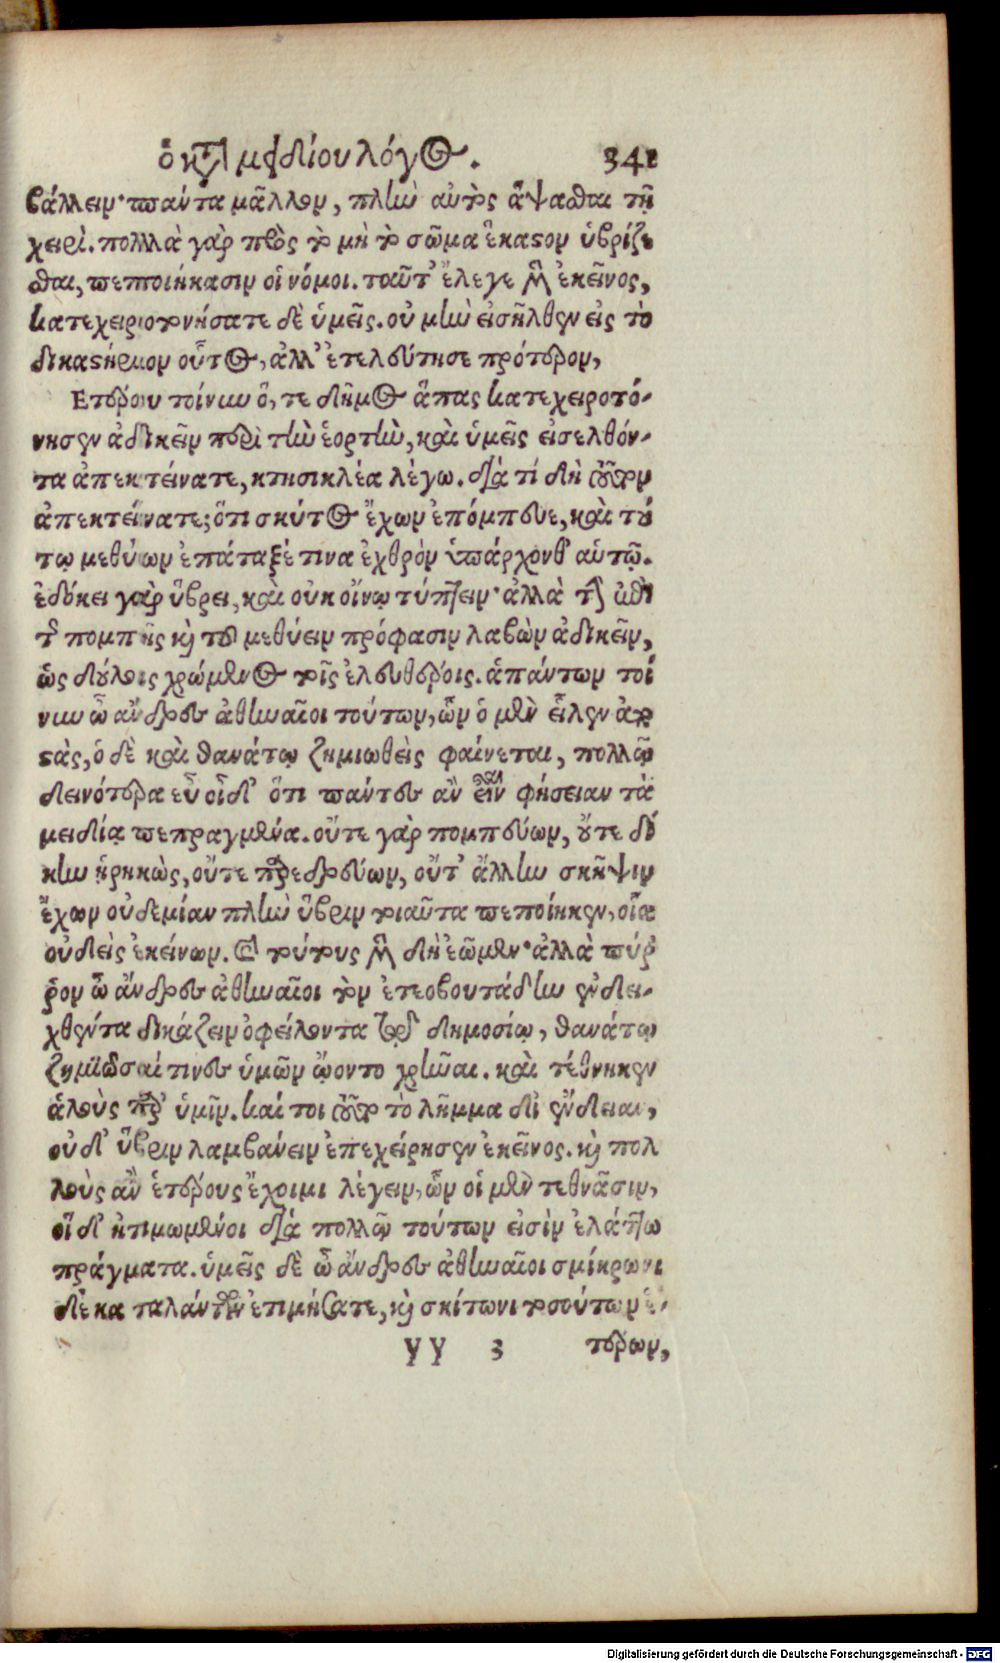 ὁ κατὰ μειδίου λόγος. 341
βάλλειν· πάντα μᾶλλον, πλὴν αὐτὸς ἅψασθαι τῇ
χειρί. πολλὰ γὰρ πρὸς τὸ μὴ τὸ σῶμα ἕκαστον ὑβρίζε
σθαι, πεποιήκασιν οἱ νόμοι. ταῦτ' ἔλεγε μὲν ἐκεῖνος,
κατεχειροτονήσατε δὲ ὑμεῖς. οὐ μὴν εἰσῆλθεν εἰς τὸ
δικαστήριον οὗτος, ἀλλ' ἐτελεύτησε πρότερον,
Ετέρου τοίνυν ὅ, τε δῆμος ἅπας κατεχειροτό-
νησεν ἀδικεῖν περὶ τὴν ἑορτὴν, καὶ ὑμεῖς εἰσελθόν-
τα ἀπεκτείνατε, κτησικλέα λέγω. διὰ τί δὴ τοῦτον
ἀπεκτείνατε; ὅτι σκύτος ἔχων ἐπόμπευε, καὶ τού
τῳ μεθύων ἐπάταξέ τινα ἐχθρὸν ὑπάρχονθ' αὑτῷ.
ἐδόκει γὰρ ὕβρει, καὶ οὐκ οἴνῳ τύπτειν· ἀλλὰ τὴν ἐπὶ
τῆς πομπῆς καὶ τοῦ μεθύειν πρόφασιν λαβὼν ἀδικεῖν,
ὡς δούλοις χρώμενος τοῖς ἐλευθέροις. ἁπάντων τοί
νυν ὦ ἄνδρες ἀθηναῖοι τούτων, ὧν ὁ μὲν εἷλεν ἀπο
στὰς, ὁ δὲ καὶ θανάτῳ ζημιωθεὶς φαίνεται, πολλῷ
δεινότερα εὖ οἶδ' ὅτι πάντες ἂν εἶναι φήσειαν τὰ
μειδίᾳ πεπραγμένα. οὔτε γὰρ πομπεύων, οὔτε δί
κην ᾑρηκὼς, οὔτε προεδρεύων, οὔτ' ἄλλην σκῆψιν
ἔχων οὐδεμίαν πλὴν ὕβριν τοιαῦτα πεποίηκεν, οἷα
οὐδεὶς ἐκείνων. καὶ τούτους μὲν δὴ ἐῶμεν· ἀλλὰ πύῤ
ῥον ὦ ἄνδρες ἀθηναῖοι τὸν ἐτεοβουτάδην ἐνδει-
χθέντα δικάζειν ὀφείλοντα τῷ δημοσίῳ, θανάτῳ
ζημιῶσαί τινες ὑμῶν ᾤοντο χρῆναι. καὶ τέθνηκεν
ἁλοὺς παρ' ὑμῖν. καί τοι τοῦτο τὸ λῆμμα δι' ἔνδειαν,
οὐ δι' ὕβριν λαμβάνειν ἐπεχείρησεν ἐκεῖνος. καὶ πολ
λοὺς ἂν ἑτέρους ἔχοιμι λέγειν, ὧν οἱ μὲν τεθνᾶσιν,
οἱ δ' ἠτιμωμένοι διὰ πολλῷ τούτων εἰσὶν ἐλάττω
πράγματα. ὑμεῖς δὲ ὦ ἄνδρες ἀθηναῖοι σμίκρωνι
δέκα ταλάντων ἐτιμήσατε, καὶ σκίτωνι τοσούτων ἑ-
yy 3 τέρων,
Digitalisierung gefördert durch die Deutsche Forschungsgemeinschaft - DFG